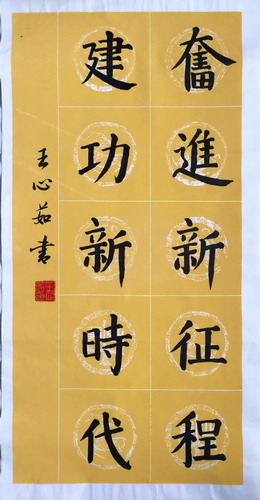 奮進新征程
建功新時代
王心茹書